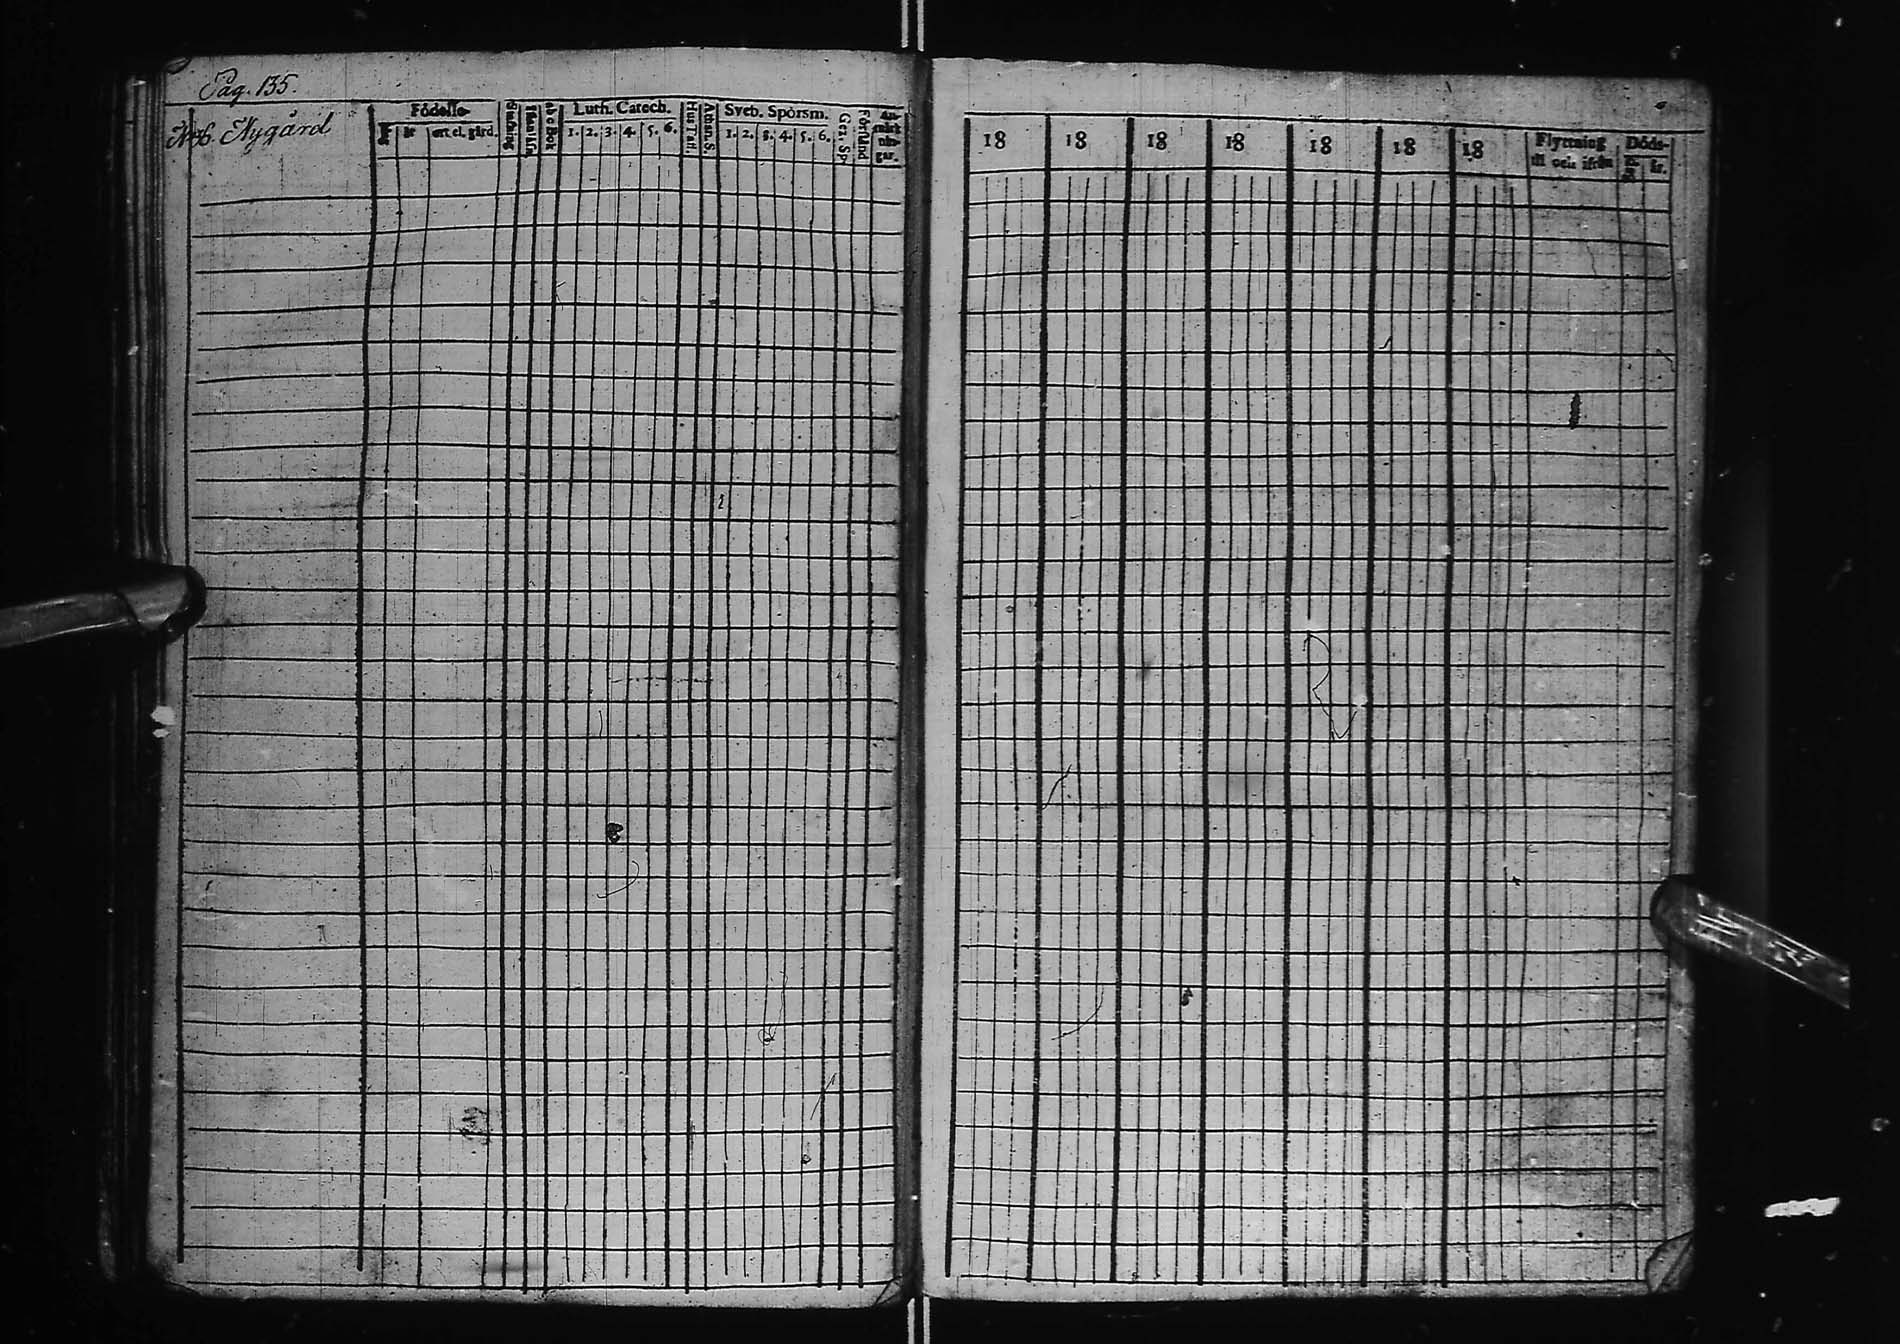 Pag. 135.
Nygård
Födelse-
år
ort el. gård.
abc Bok
Luth. Catech.
1. 2. 3. 4. 5. 6.
Hus Tafl.
Athan. S.
Sveb. Spörsm.
1. 2. 3. 4. 5. 6.
Ger. Sp.
Förstånd
An-
märk
nin-
gar.
18 18 18 18 18 18 18
Flyttning
til och ifrån
Döds-
år.